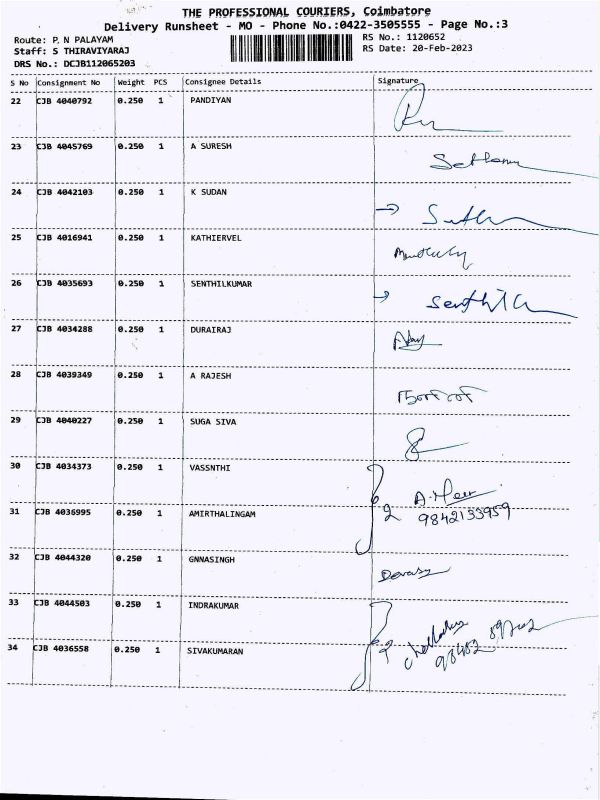 THE PROFESSIONAL COURIERS, Coimbatore
Delivery Runsheet - MO - Phone No.:0422-3505555 - Page No.:3
Route: P, N PALAYAM
RS No.: 1120652
Staff: S THIRAVIYARAJ
RS Date: 20-Feb-2023
DRS No.: DCJB112065203
S No Consignment No Weight PCS Consignee Details Signature
22 CJB 4040792 0.250 1 PANDIYAN
23 CJB 4045769 0.250 1 A SURESH
24 CJB 4042103 0.250 1 K SUDAN
25 CJB 4016941 0.250 1 KATHIERVEL
26 CJB 4035693 0.250 1 SENTHILKUMAR
27 CJB 4034288 0.250 1 DURAIRAJ
28 CJB 4039349 0.250 1 A RAJESH
29 CJB 4040227 0.250 1 SUGA SIVA
30 CJB 4034373 0.250 1 VASSNTHI
31 CJB 4036995 0.250 1 AMIRTHALINGAM 2 9842133959
32 CJB 4044320 0.250 1 GNNASINGH
33 CJB 4044503 0.250 1 INDRAKUMAR
34 CJB 4036558 0.250 1 SIVAKUMARAN